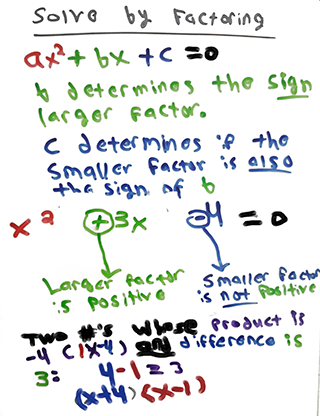 Solve by Factoring
ax² + bx + c = 0
b determines the sign
larger factor.
C determines if the
smaller factor is also
the sign of b
x² + 3x - 4 = 0
Larger factor
is positive
Smaller factor
is not positive
Two #'s whose product is
-4 (1x-4) and difference is
3: 4-1=3
(x+4)(x-1)